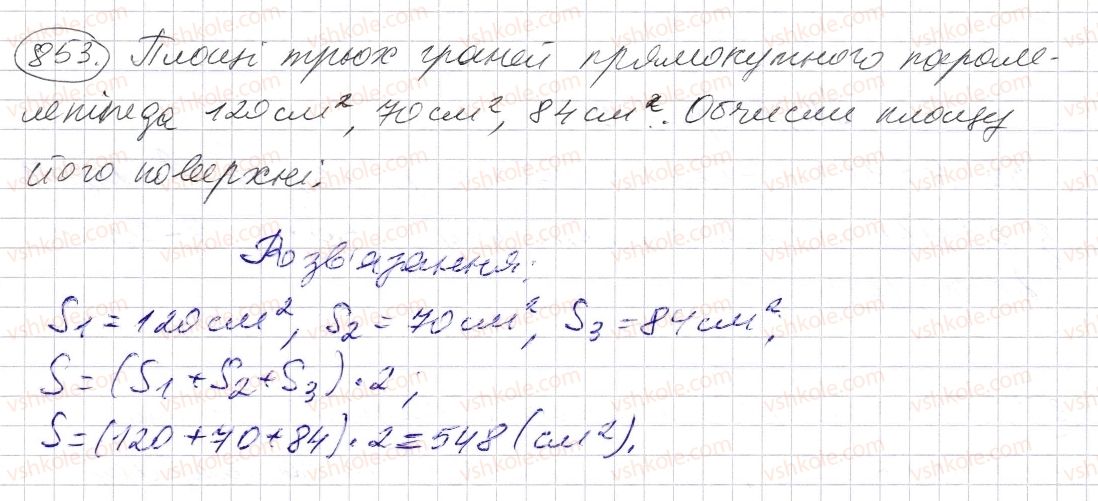 853. Площі трьох граней прямокутного парале-
лепіпеда 120 см², 70 см², 84 см². Обчисли площу
його поверхні.
Розв'язання:
S₁ = 120 см², S₂ = 70 см², S₃ = 84 см²,
S = (S₁ + S₂ + S₃) · 2;
S = (120 + 70 + 84) · 2 = 548 (см²).